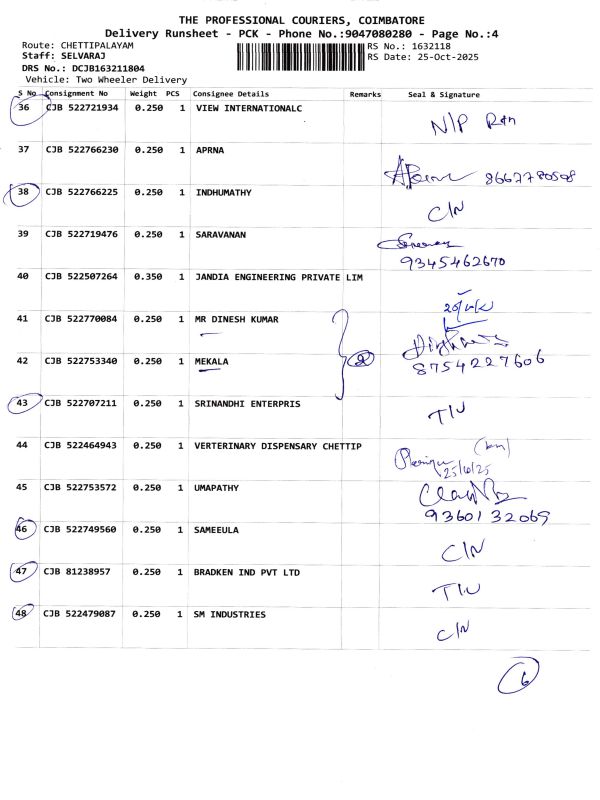 THE PROFESSIONAL COURIERS, COIMBATORE
Delivery Runsheet - PCK - Phone No.:9047080280 - Page No.:4
Route: CHETTIPALAYAM
Staff: SELVARAJ
DRS No.: DCJB163211804
Vehicle: Two Wheeler Delivery
RS No.: 1632118
RS Date: 25-Oct-2025
S No Consignment No Weight PCS Consignee Details Remarks Seal & Signature
36 CJB 522721934 0.250 1 VIEW INTERNATIONALC
N/P
37 CJB 522766230 0.250 1 APRNA
8667780598
38 CJB 522766225 0.250 1 INDHUMATHY
C/N
39 CJB 522719476 0.250 1 SARAVANAN
9345462670
40 CJB 522507264 0.350 1 JANDIA ENGINEERING PRIVATE LIM
41 CJB 522770084 0.250 1 MR DINESH KUMAR
42 CJB 522753340 0.250 1 MEKALA
2
8754227606
43 CJB 522707211 0.250 1 SRINANDHI ENTERPRIS
44 CJB 522464943 0.250 1 VERTERINARY DISPENSARY CHETTIP
25/10/25
45 CJB 522753572 0.250 1 UMAPATHY
9360132069
46 CJB 522749560 0.250 1 SAMEEULA
C/N
47 CJB 81238957 0.250 1 BRADKEN IND PVT LTD
48 CJB 522479087 0.250 1 SM INDUSTRIES
C/N
6